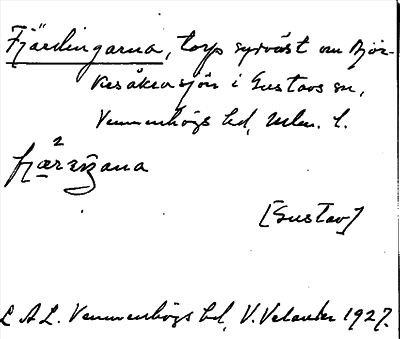 Fjärdingarna, torp sydväst om Björ-
kesåkrasjön i Gustavs sn,
Vemmenhögs hd, Mlm. l.
fjäraŋana
2
[Gustav]
L A L. Vemmenhögs hd, V. Velander 1927.